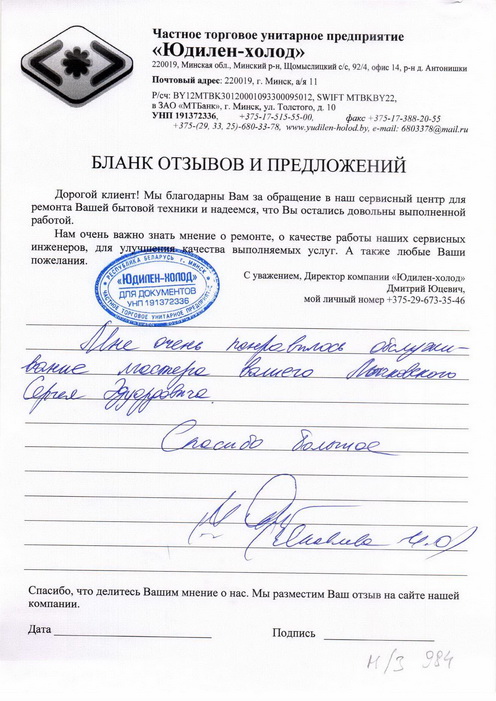 Частное торговое унитарное предприятие
«Юдилен-холод»
220019, Минская обл., Минский р-н, Щомыслицкий с/с, 92/4, офис 14, р-н д. Антонишки
Почтовый адрес: 220019, г. Минск, а/я 11
Р/сч: BY12MTBK30120001093300095012, SWIFT MTBKBY22,
в ЗАО «МТБанк», г. Минск, ул. Толстого, д. 10
УНП 191372336, +375-17-515-55-00, факс +375-17-388-20-55
+375-(29, 33, 25)-680-33-78, www.yudilen-holod.by, e-mail: 6803378@mail.ru
БЛАНК ОТЗЫВОВ И ПРЕДЛОЖЕНИЙ
Дорогой клиент! Мы благодарны Вам за обращение в наш сервисный центр для
ремонта Вашей бытовой техники и надеемся, что Вы остались довольны выполненной
работой.
Нам очень важно знать мнение о ремонте, о качестве работы наших сервисных
инженеров, для улучшения качества выполняемых услуг. А также любые Ваши
пожелания.
С уважением, Директор компании «Юдилен-холод»
Дмитрий Юцевич,
мой личный номер +375-29-673-35-46
РЕСПУБЛИКА БЕЛАРУСЬ г. МИНСК
«ЮДИЛЕН-ХОЛОД»
ДЛЯ ДОКУМЕНТОВ
УНП 191372336
ЧАСТНОЕ ТОРГОВОЕ УНИТАРНОЕ ПРЕДПРИЯТИЕ
Мне очень понравилось обслужи-
вание мастера вашего
Сергея Эдуардовича.
Спасибо большое
Спасибо, что делитесь Вашим мнением о нас. Мы разместим Ваш отзыв на сайте нашей
компании.
Дата Подпись
Н/З 984